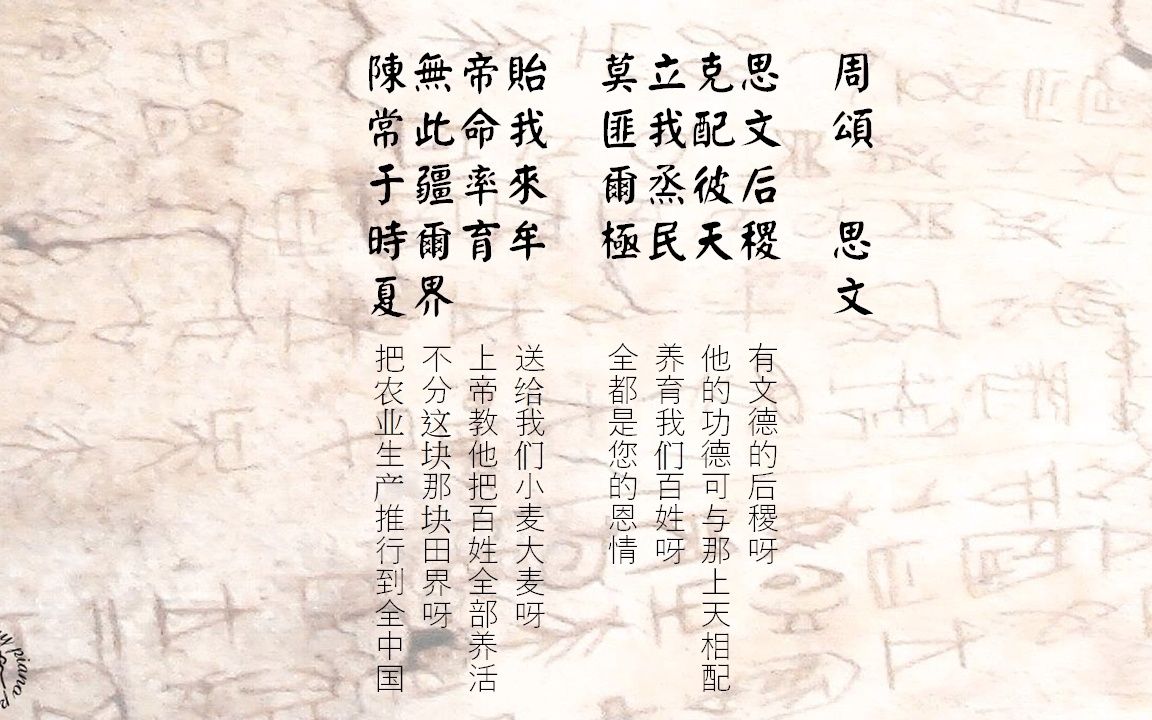 周頌 思文
思文后稷
克配彼天
立我烝民
莫匪爾極
貽我來牟
帝命率育
無此疆爾界
陳常于時夏
有文德的后稷呀
他的功德可与那上天相配
养育我们百姓呀
全都是您的恩情
送给我们小麦大麦呀
上帝教他把百姓全部养活
不分这块那块田界呀
把农业生产推行到全中国
piano